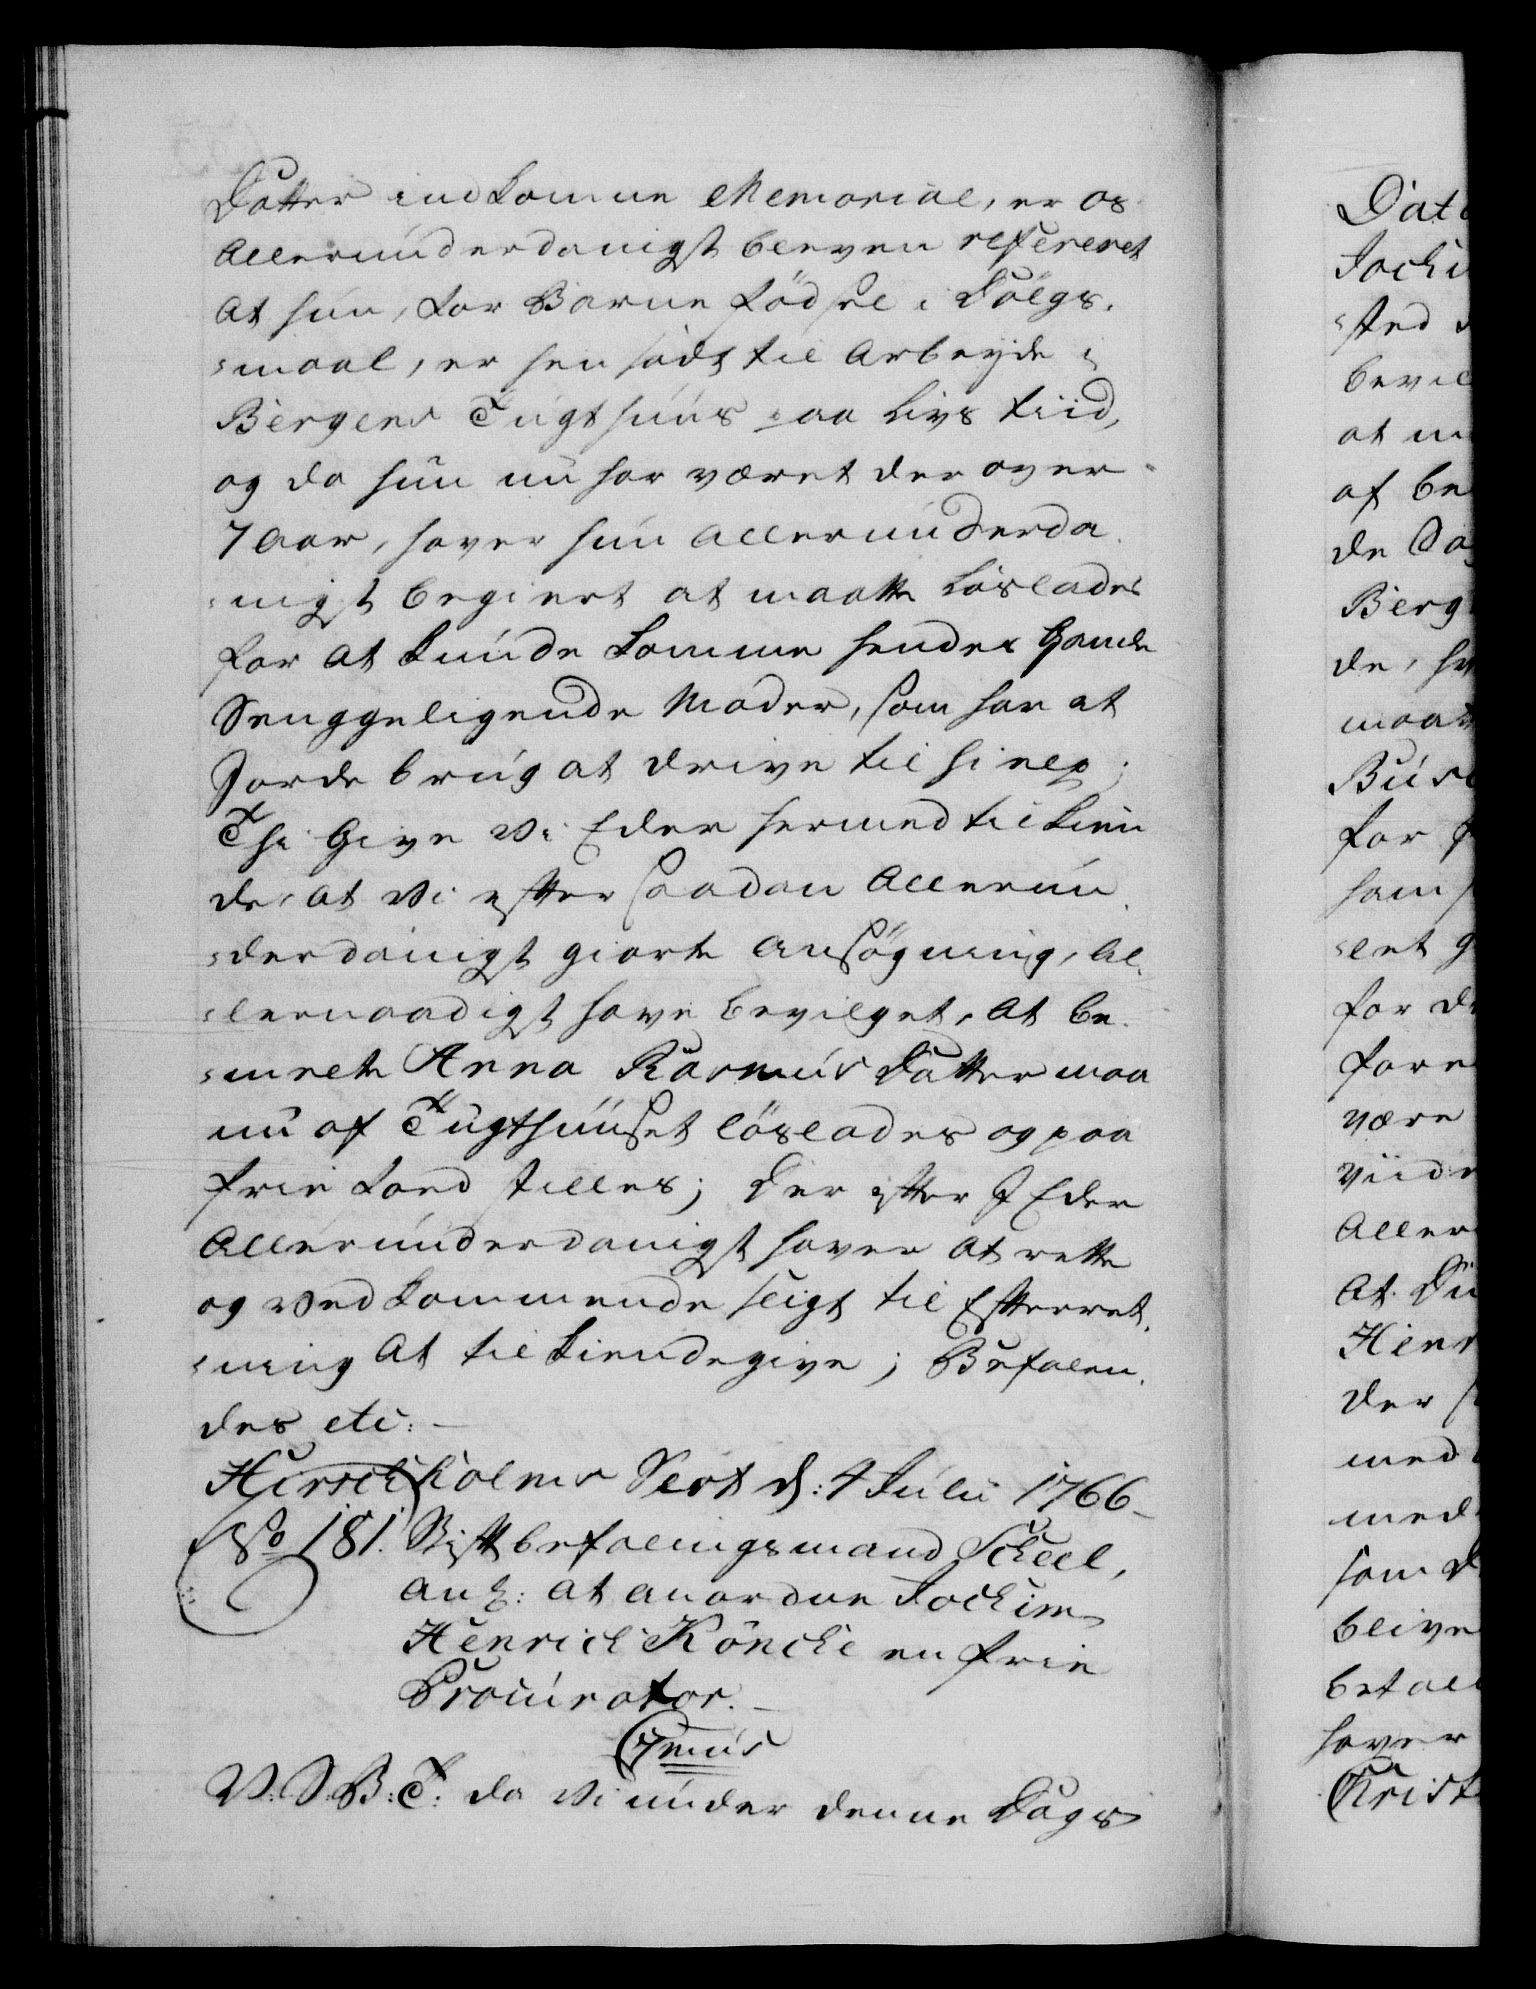 Datter indkomne Memorial, er os
Allerunderdanigst bleven refereret
At hun, for Barne fødsel i Dølgs-
-maal, er hensadt til Arbeyde i
Bergens Tugthuus paa Livs tiid,
og da hun nu har været der over
7 Aar, haver hun Allerunderda-
-nigst begiert at maatte Løslades
for at kunde komme hendes Gamle
Senggeligende Moder, som har at
Jorde brug at drive til hielp;
Thi Give Vi Eder hermed tilkien
de, at Vi efter saadan Allerun-
-derdanigst giorte Ansøgning, Al-
-lernaadigst have bevilget, At be-
-melte Anna Rasmus Datter maa
nu af Tugthuuset løslades og paa
frie Food stilles; Der efter I Eder
Allerunderdanigst haver At rette
og Vedkommende sligt til Efterret-
-ning At tilkiendegive; Befalen-
des etc:
Hirschholms Slot d: 4 Julii 1766
No 181. Stiftbefalingsmand Scheel,
anl: At anordne Jochim
Henrich Köncke en frie
Procurator.
(7mus
V. S. B: T. da Vi under denne Dags
Dat
Jochi
-sted
bevil
at m
af be
de Sa
Berg
de, h
maat
Bus
for
ham
-let g
for d
fore
være
Viide
Aller
At. Du
Hen
der
med
med
som d
blive
betal
haver
Christ